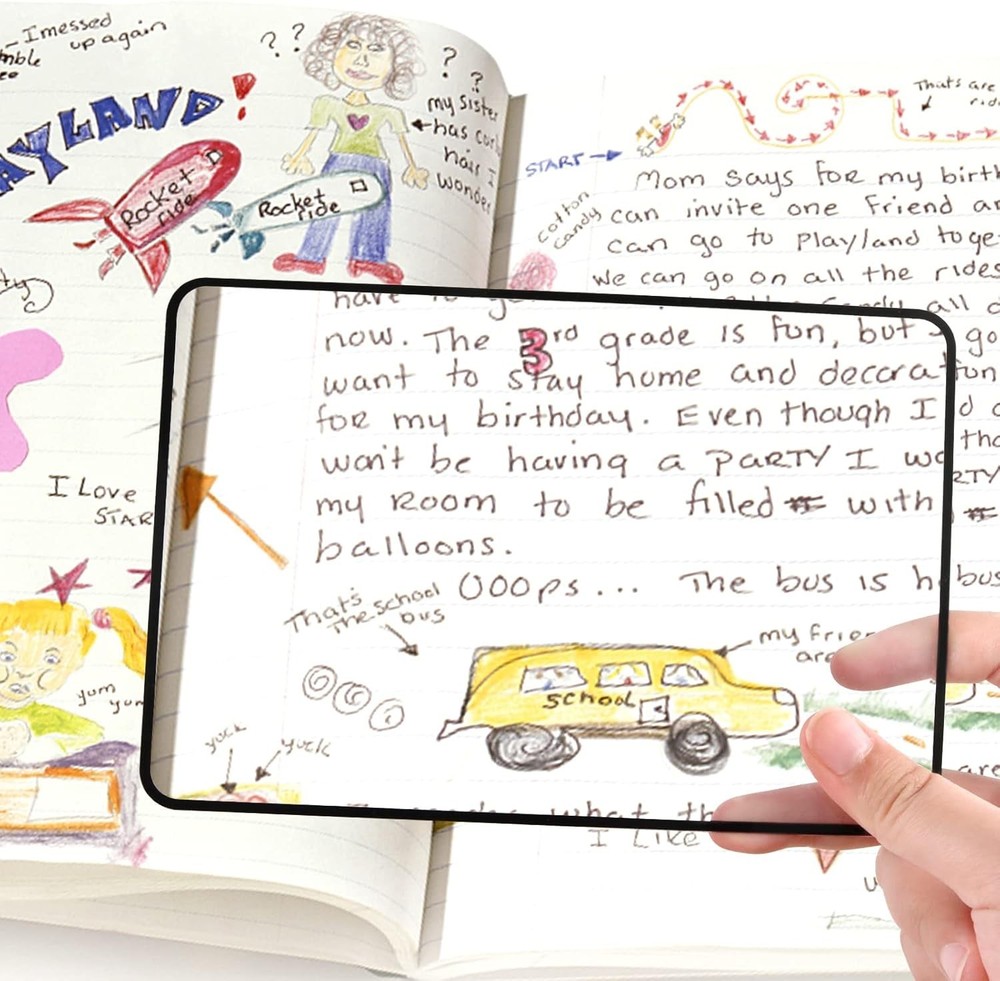 I messed
up again
AYLAND!
? ?
?
?
my sister
has
hair I
wonder
Rocket
ride
Rocket
ride
I Love
STAR
yum
yum
Thats are
START
cotton
candy
Mom says for my birth
can invite one friend an
can go to Playland toge
We can go on all the rides
all
now. The 3rd grade is fun, but
want to stay home and decorat
for my birthday. Even though I
won't be having a PARTY I wo
my room to be filled with
balloons.
OOOps... The bus is h
That's
the school
bus
my frie
are
SCHOOL
yuck
yuck
what th
I Like
go
bus
are